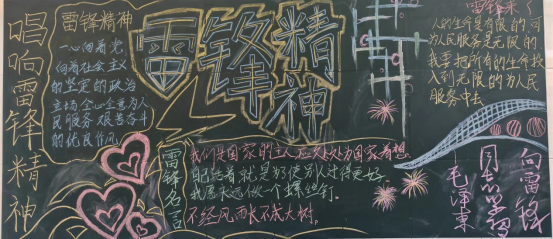 唱响雷锋精神
雷锋精神
一心向着党
向着社会主义
的坚定的政治
立场全心全意为人
民服务艰苦奋斗
的优良作风
雷锋精神
雷锋名言
我们是国家的主人应处处为国家着想
自己活着就是为了使别人过得更好
我愿永远做一个螺丝钉。
不经风雨长不成大树，
人的生命是有限的，可
为人民服务是无限的
我要把所有的生命投
入到无限的为人民
服务中去
向雷锋
同志学习
毛泽东